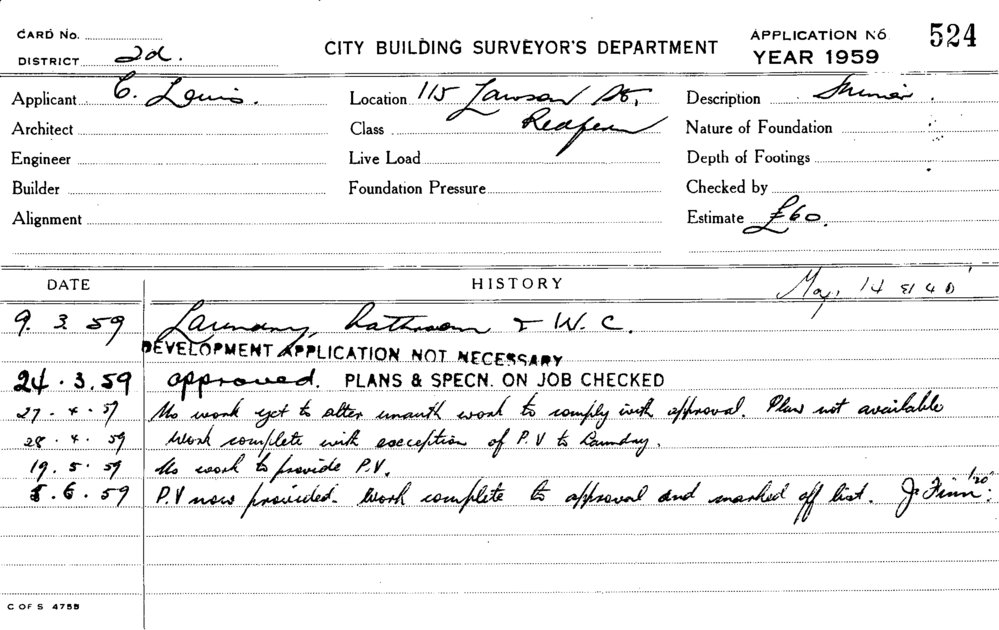 CARD No.
DISTRICT 2d.
CITY BUILDING SURVEYOR'S DEPARTMENT
APPLICATION No. 524
YEAR 1959
Applicant C. Lewis.
Location 115 Lawson St,
Description
Architect
Class Redfern
Nature of Foundation
Engineer
Live Load
Depth of Footings
Builder
Foundation Pressure
Checked by
Alignment
Estimate £60.
DATE
HISTORY
May, 14
9. 3. 59 Laundry, bathroom & W.C.
DEVELOPMENT APPLICATION NOT NECESSARY
24. 3. 59 approved. PLANS & SPECN. ON JOB CHECKED
27. 4. 59 No work yet to alter unauth work to comply with approval. Plan not available
28. 4. 59 Work complete with exception of P.V to Laundry.
19. 5. 59 No work to provide P.V.
5. 6. 59 P.V now provided. Work complete to approval and marked off list. J. Finn
C OF S 475B